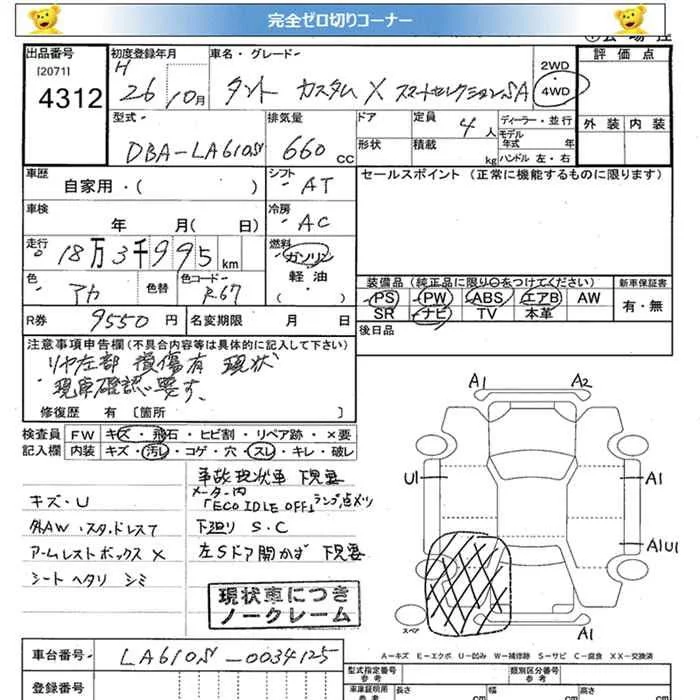 完全ゼロ切りコーナー
出品番号 [2071] 4312
初度登録年月 H 26年 10月
車名・グレード タント カスタム X スマートセレクションSA
2WD・4WD
評価点
型式 DBA-LA610S
排気量 660 CC
ドア 形状
定員 4人
積載 kg
ディーラー・並行
モデル年式 年
ハンドル 左・右
外装 内装
車歴 自家用・( )
シフト AT
セールスポイント (正常に機能するものに限ります)
車検 年 月( 日)
冷房 AC
走行 18万3千995 km
燃料 ガソリン 軽油 ( )
色 アカ 色替
色コード R67
装備品 (純正品に限り○をつけてください)
新車保証書
PS PW ABS エアB AW
SR ナビ TV 本革
有・無
R券 9550 円
名変期限 月 日
後日品
注意事項申告欄 (不具合内容等は具体的に記入して下さい)
リヤ左部 損傷有 現状
現車確認要す。
修復歴 有 〔箇所 〕
検査員記入欄
FW キズ・飛石・ヒビ割・リペア跡・×要
内装 キズ・汚レ・コゲ・穴・スレ・キレ・破レ
キズ・U
外AW・スタッドレス7
アームレストボックス X
シートヘタリ シミ
事故現状車 下見要
メーター内
「ECO IDLE OFF」ランプ点メツ
下廻り S・C
左Sドア開かず 下見要
現状車につき
ノークレーム
A1 A2
U1 A1
A1U1
A1
スペア
A-キズ E-エクボ U-凹み W-補修跡 S-サビ C-腐食 XX-交換済
車台番号 LA610S-0034125
登録番号
型式指定番号 参考
類別区分番号 参考
車庫証明用 参考
長さ cm 幅 cm 高さ cm